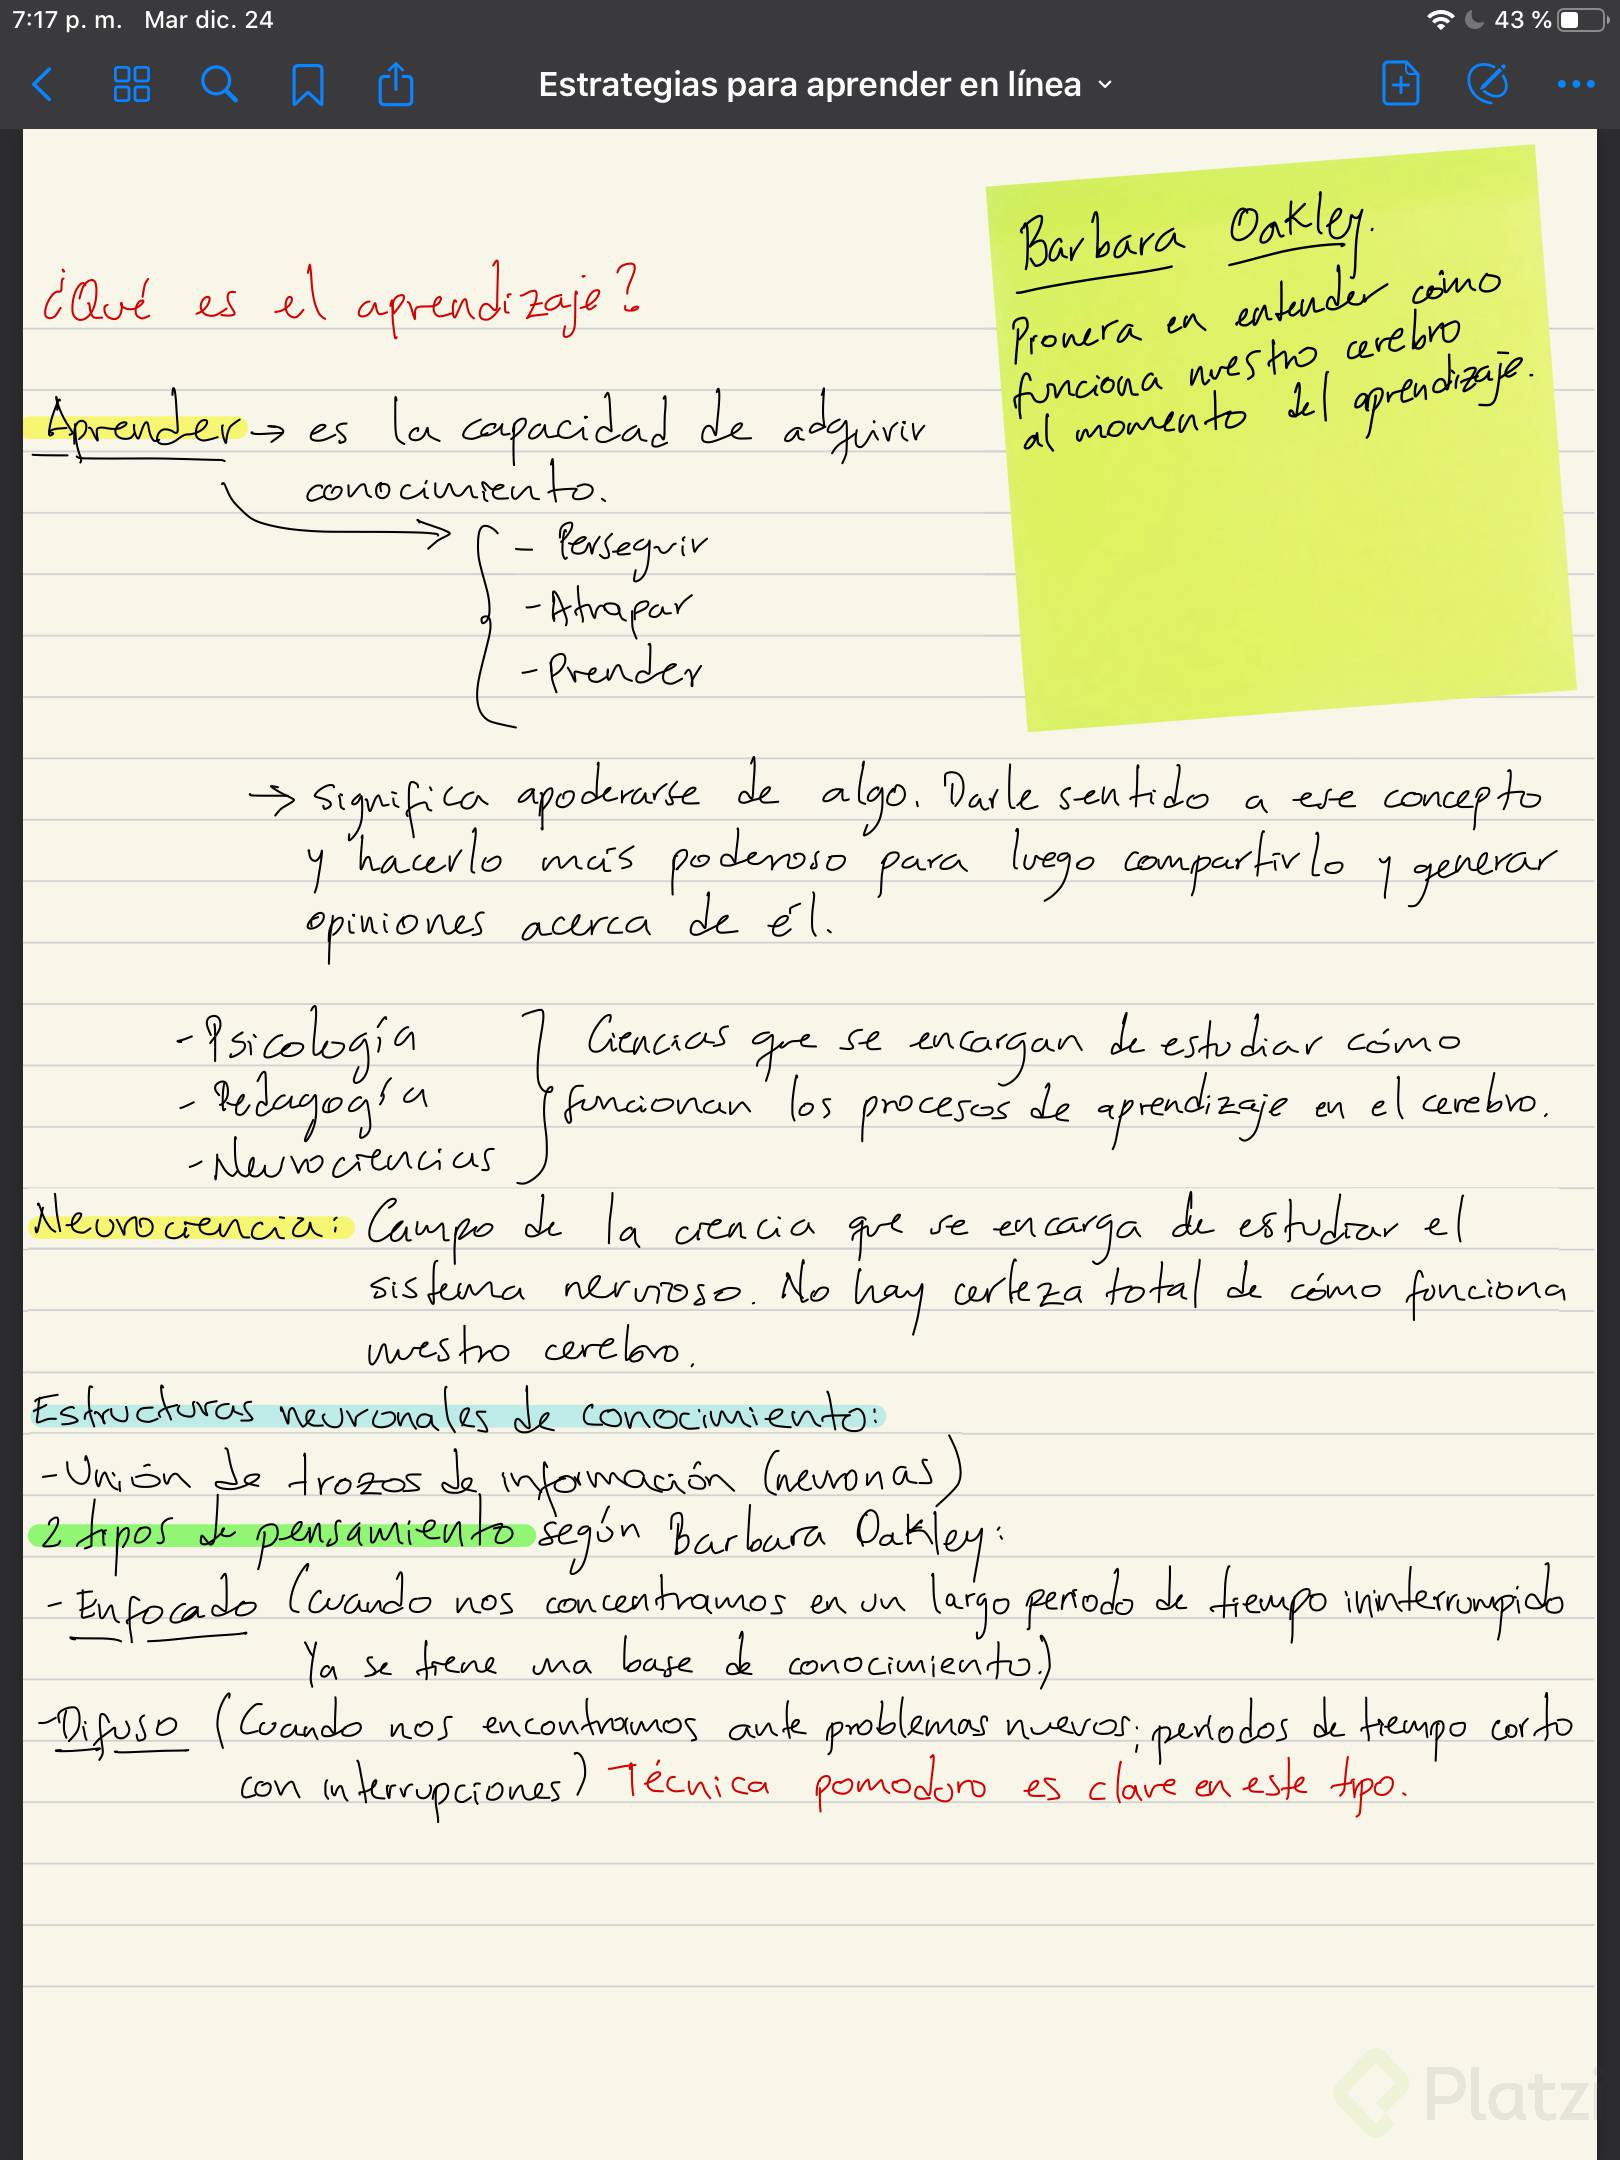 7:17 p. m. Mar dic. 24
43 %
Estrategias para aprender en línea
Barbara Oakley.
Pionera en entender cómo
funciona nuestro cerebro
al momento del aprendizaje.
¿Qué es el aprendizaje?
Aprender → es la capacidad de adquirir
conocimiento.
- Perseguir
- Atrapar
- Prender
→ significa apoderarse de algo. Darle sentido a ese concepto
y hacerlo más poderoso para luego compartirlo y generar
opiniones acerca de él.
- Psicología
- Pedagogía
- Neurociencias
Ciencias que se encargan de estudiar cómo
funcionan los procesos de aprendizaje en el cerebro.
Neurociencia: Campo de la ciencia que se encarga de estudiar el
sistema nervioso. No hay certeza total de cómo funciona
nuestro cerebro.
Estructuras neuronales de conocimiento:
- Unión de trozos de información (neuronas)
2 tipos de pensamiento según Barbara Oakley:
- Enfocado (cuando nos concentramos en un largo periodo de tiempo ininterrumpido
Ya se tiene una base de conocimiento.)
- Difuso (Cuando nos encontramos ante problemas nuevos; periodos de tiempo corto
con interrupciones) Técnica pomodoro es clave en este tipo.
Platzi